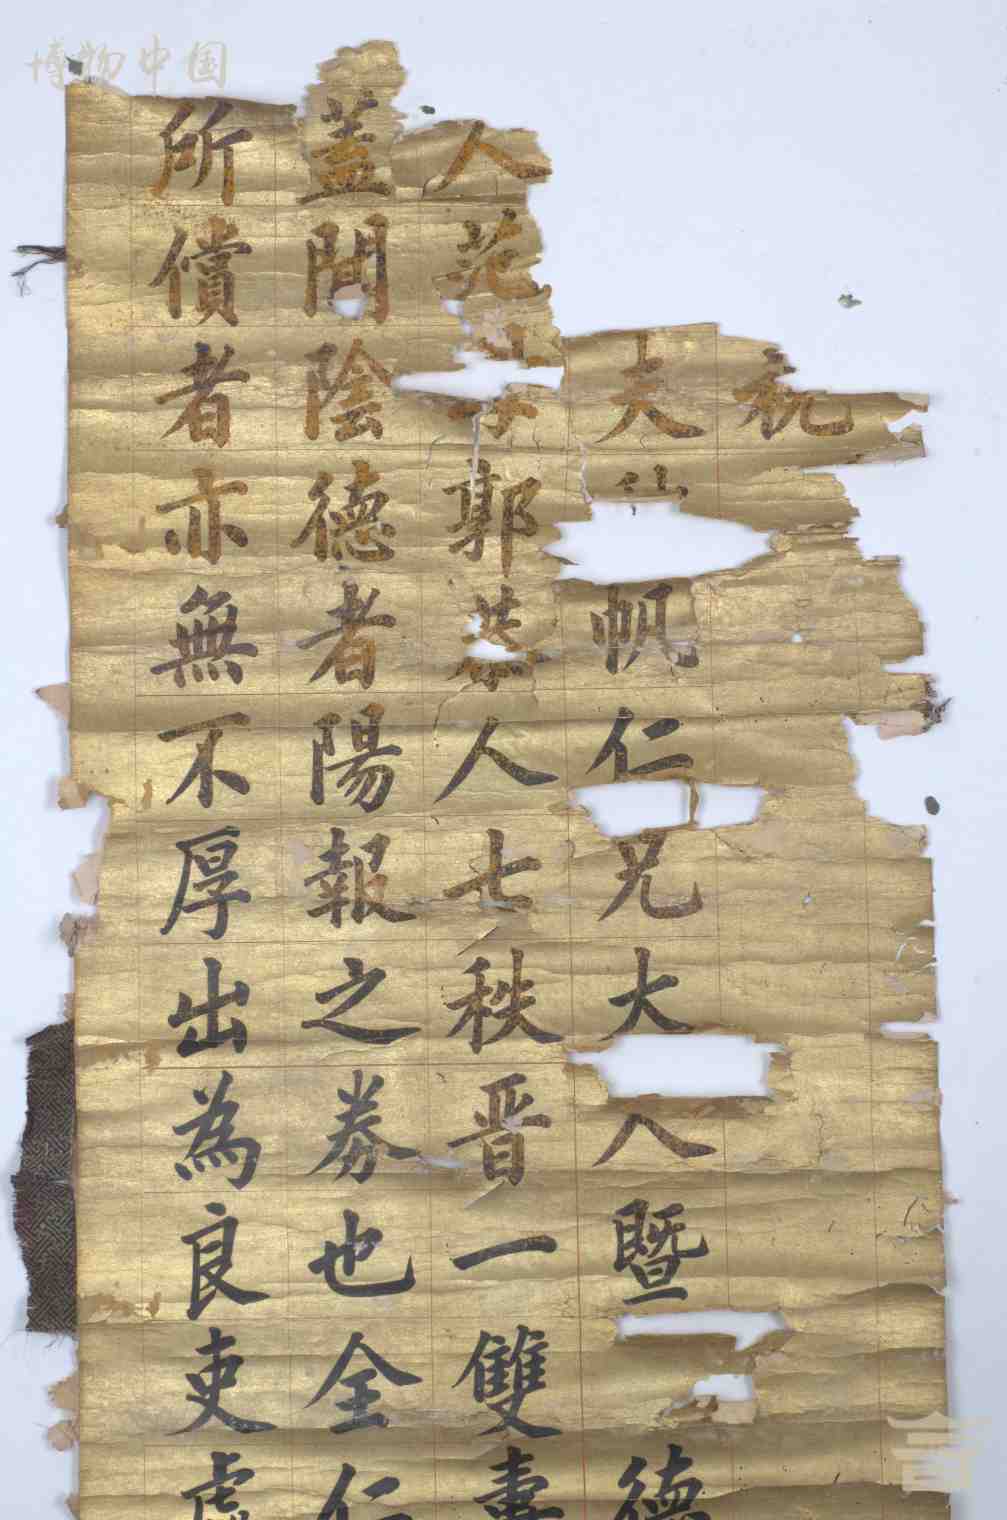 博物中国
祝
夫 帆仁兄大人暨 德
人范 郭恭人七秩晋一雙壽
蓋聞陰德者陽報之券也全仁
所償者亦無不厚出為良吏